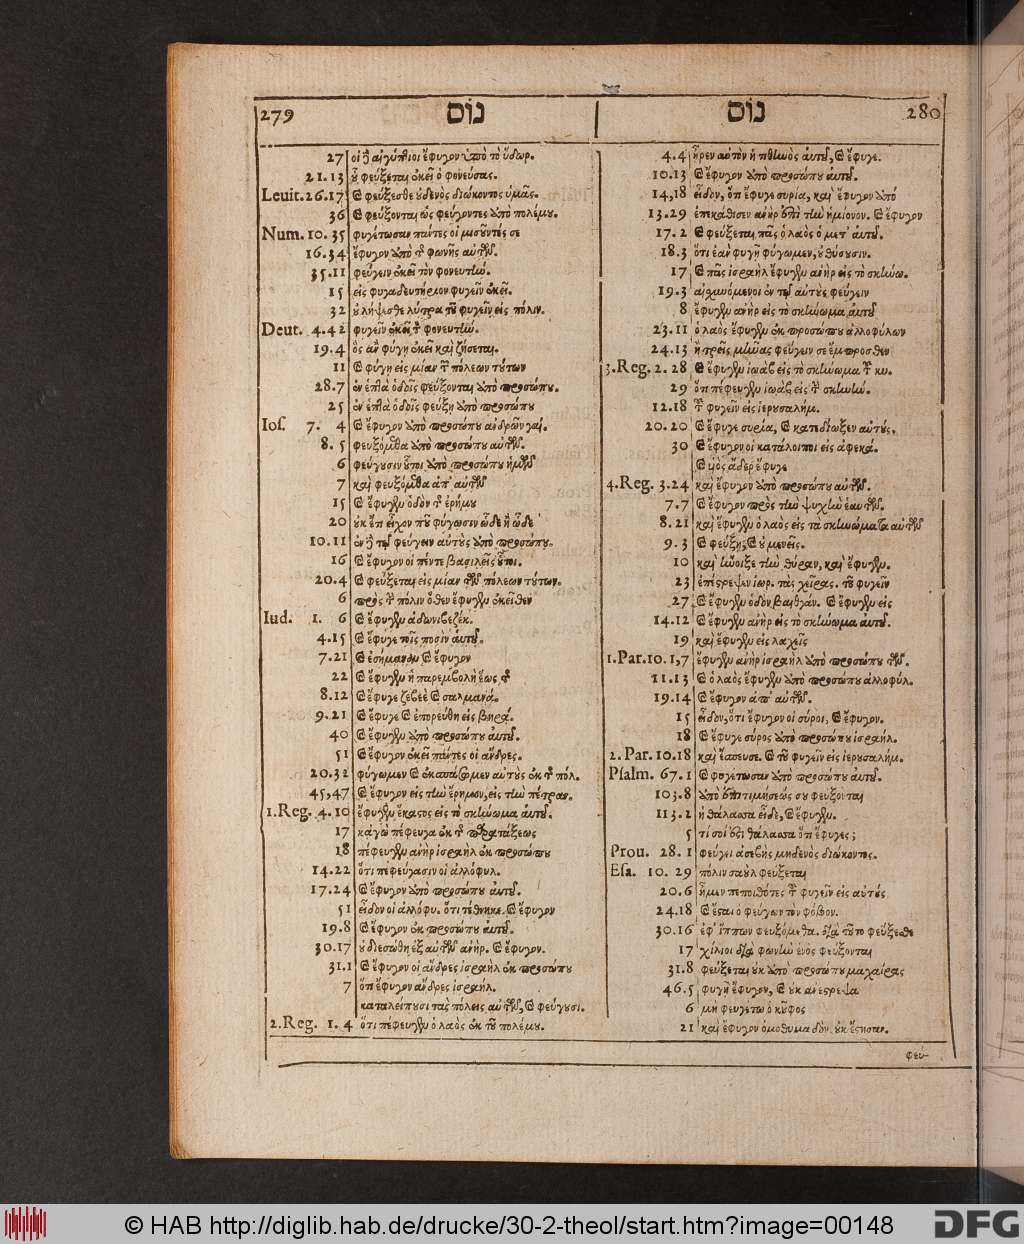 279 נוֹס
27 οἱ ϳ αἰγύπτιοι ἔφυγον ὑπὸ τὸ ὕδωρ.
21.13 φεύξεται ἐκεῖ ὁ φονεύσας.
Leuit. 26.17 καὶ φεύξεσθε οὐδενὸς διώκοντος ὑμᾶς.
36 καὶ φεύξονται ὡς φεύγοντες ἀπὸ πολέμου.
Num. 10.35 φυγέτωσαν πάντες οἱ μισοῦντές σε
16.34 ἔφυγον ἀπὸ τῆς φωνῆς αὐτῶν.
35.11 φεύγειν ἐκεῖ τὸν φονευτὴν.
15 εἰς φυγαδευτήριον φυγεῖν ἐκεῖ.
32 οὐ λήψεσθε λύτρα τοῦ φυγεῖν εἰς πόλιν.
Deut. 4.42 φυγεῖν ἐκεῖ τ φονευτὴν.
19.4 ὃς ἂν φύγῃ ἐκεῖ καὶ ζήσεται.
11 καὶ φύγῃ εἰς μίαν τῶν πόλεων τούτων
28.7 ἐν ἑπτὰ ὁδοῖς φεύξονται ἀπὸ προσώπου.
25 ἐν ἑπτὰ ὁδοῖς φεύξῃ ἀπὸ προσώπου
Ios. 7. 4 καὶ ἔφυγον ἀπὸ προσώπου ἀνδρῶν γαί.
8. 5 φευξόμεθα ἀπὸ προσώπου αὐτῶν.
6 φεύγουσιν οὗτοι ἀπὸ προσώπου ἡμῶν
7 καὶ φευξόμεθα ἀπ' αὐτῶν
15 καὶ ἔφυγεν ὁδὸν τῆς ἐρήμου
20 οὐκ ἔτι εἶχον ποῦ φύγωσιν ὧδε ἢ ὧδε
10.11 ἐν ϳ τῷ φεύγειν αὐτοὺς ἀπὸ προσώπου.
16 καὶ ἔφυγον οἱ πέντε βασιλεῖς οὗτοι.
20.4 καὶ φεύξεται εἰς μίαν τῶν πόλεων τούτων.
6 πρὸς τ πόλιν ὅθεν ἔφυγεν ἐκεῖθεν
Iud. 1. 6 καὶ ἔφυγεν ἀδωνιβεζέκ.
4.15 καὶ ἔφυγε τοῖς ποσὶν αὑτοῦ.
7.21 καὶ ἐσήμαναν καὶ ἔφυγον
22 καὶ ἔφυγεν ἡ παρεμβολὴ ἕως τ
8.12 καὶ ἔφυγε ζεβεὲ καὶ σαλμανά.
9.21 καὶ ἔφυγε καὶ ἐπορεύθη εἰς βηρά.
40 καὶ ἔφυγεν ἀπὸ προσώπου αὐτοῦ.
51 καὶ ἔφυγον ἐκεῖ πάντες οἱ ἄνδρες.
20.32 φύγωμεν καὶ ἐκσπάσωμεν αὐτοὺς ἐκ τ πόλ.
45,47 καὶ ἔφυγον εἰς τὴν ἔρημον, εἰς τὴν πέτραν.
1.Reg. 4.10 ἔφυγεν ἕκαστος εἰς τὸ σκήνωμα αὑτοῦ.
17 κἀγὼ πέφευγα ἐκ τ παρατάξεως
18 πέφευγεν ἀνὴρ ἰσραὴλ ἐκ προσώπου
14.22 ὅτι πεφεύγασιν οἱ ἀλλόφυλ.
17.24 καὶ ἔφυγον ἀπὸ προσώπου αὐτοῦ.
51 εἶδον οἱ ἀλλόφυ. ὅτι τέθνηκε. καὶ ἔφυγον
19.8 καὶ ἔφυγον ἐκ προσώπου αὐτοῦ.
30.17 οὐ διεσώθη ἐξ αὐτῶν ἀνὴρ. καὶ ἔφυγον.
31.1 καὶ ἔφυγον οἱ ἄνδρες ἰσραὴλ ἐκ προσώπου
7 ὅτι ἔφυγον ἄνδρες ἰσραήλ.
καταλείπουσι τὰς πόλεις αὑτῶν, καὶ φεύγουσι.
2.Reg. 1. 4 ὅτι πέφευγεν ὁ λαὸς ἐκ τοῦ πολέμου.
נוֹס 280
4.4 ἦρεν αὐτὸν ἡ τιθηνὸς αὐτοῦ, καὶ ἔφυγε.
10.13 καὶ ἔφυγον ἀπὸ προσώπου αὐτοῦ.
14,18 εἶδον, ὅτι ἔφυγε συρία, καὶ ἔφυγον ἀπὸ
13.29 ἐπεκάθισεν ἀνὴρ ἐπὶ τὴν ἡμίονον. καὶ ἔφυγον
17.2 καὶ φεύξεται πᾶς ὁ λαὸς ὁ μετ' αὐτοῦ.
18.3 ὅτι ἐὰν φυγῇ φύγωμεν, οὐ θύσουσιν.
17 καὶ πᾶς ἰσραὴλ ἔφυγεν ἀνὴρ εἰς τὸ σκήνω.
19.3 αἰσχυνόμενοι ἐν τῷ αὐτοὺς φεύγειν
8 ἔφυγεν ἀνὴρ εἰς τὸ σκήνωμα αὑτοῦ
23.11 ὁ λαὸς ἔφυγεν ἐκ προσώπου ἀλλοφύλων
24.13 ἢ τρεῖς μῆνας φεύγειν σε ἔμπροσθεν
3.Reg. 2.28 καὶ ἔφυγεν ἰωὰβ εἰς τὸ σκήνωμα τ κυ.
29 ὅτι πέφευγεν ἰωὰβ εἰς τ σκηνήν.
12.18 τ φυγεῖν εἰς ἱερουσαλήμ.
20.20 καὶ ἔφυγε συρία, καὶ κατεδίωξεν αὐτούς.
30 καὶ ἔφυγον οἱ κατάλοιποι εἰς ἀφεκά.
καὶ υἱὸς ἄδερ ἔφυγε
4.Reg. 3.24 καὶ ἔφυγον ἀπὸ προσώπου αὐτῶν.
7.7 καὶ ἔφυγον πρὸς τὴν ψυχὴν ἑαυτῶν.
8.21 καὶ ἔφυγεν ὁ λαὸς εἰς τὰ σκηνώματα αὐτῶν
9. 3 καὶ φεύξῃ, καὶ οὐ μενεῖς.
10 καὶ ἤνοιξε τὴν θύραν, καὶ ἔφυγεν.
23 ἐπέστρεψεν ἰωρ. τὰς χεῖρας. τοῦ φυγεῖν
27 καὶ ἔφυγεν ὁδὸν βαιθγάν. καὶ ἔφυγεν εἰς
14.12 καὶ ἔφυγεν ἀνὴρ εἰς τὸ σκήνωμα αὑτοῦ.
19 καὶ ἔφυγεν εἰς λαχεῖς
1.Par. 10. 1,7 ἔφυγεν ἀνὴρ ἰσραὴλ ἀπὸ προσώπου τῶν.
11.13 καὶ ὁ λαὸς ἔφυγεν ἀπὸ προσώπου ἀλλοφύλ.
19.14 καὶ ἔφυγον ἀπ' αὐτῶν.
15 εἶδον, ὅτι ἔφυγον οἱ σύροι, καὶ ἔφυγον.
18 καὶ ἔφυγε σύρος ἀπὸ προσώπου ἰσραήλ.
2. Par. 10.18 καὶ ἔσπευσε. καὶ τοῦ φυγεῖν εἰς ἱερουσαλήμ.
Psalm. 67.1 καὶ φυγέτωσαν ἀπὸ προσώπου αὐτοῦ.
103.8 ἀπὸ ἐπιτιμήσεώς σου φεύξονται
113.2 ἡ θάλασσα εἶδε, καὶ ἔφυγεν.
5 τί σοί ἐστι θάλασσα ὅτι ἔφυγες;
Prou. 28. 1 φεύγει ἀσεβὴς μηδενὸς διώκοντος.
Esa. 10. 29 πόλιν σαοὺλ φεύξεται
20.6 ἦμεν πεποιθότες τ φυγεῖν εἰς αὐτούς
24.18 καὶ ἔσται ὁ φεύγων τὸν φόβον.
30.16 ἐφ' ἵππων φευξόμεθα. διὰ τοῦτο φεύξεσθε
17 χίλιοι διὰ φωνὴν ἑνὸς φεύξονται
31.8 φεύξεται οὐκ ἀπὸ προσώπου μαχαίρας
46.5 φυγῇ ἔφυγον, καὶ οὐκ ἀνέστρεψα
6 μὴ φευγέτω ὁ κοῦφος
21 καὶ ἔφυγον ὁμοθυμαδὸν. οὐκ ἔστησαν.
φεύ-
© HAB http://diglib.hab.de/drucke/30-2-theol/start.htm?image=00148 DFG